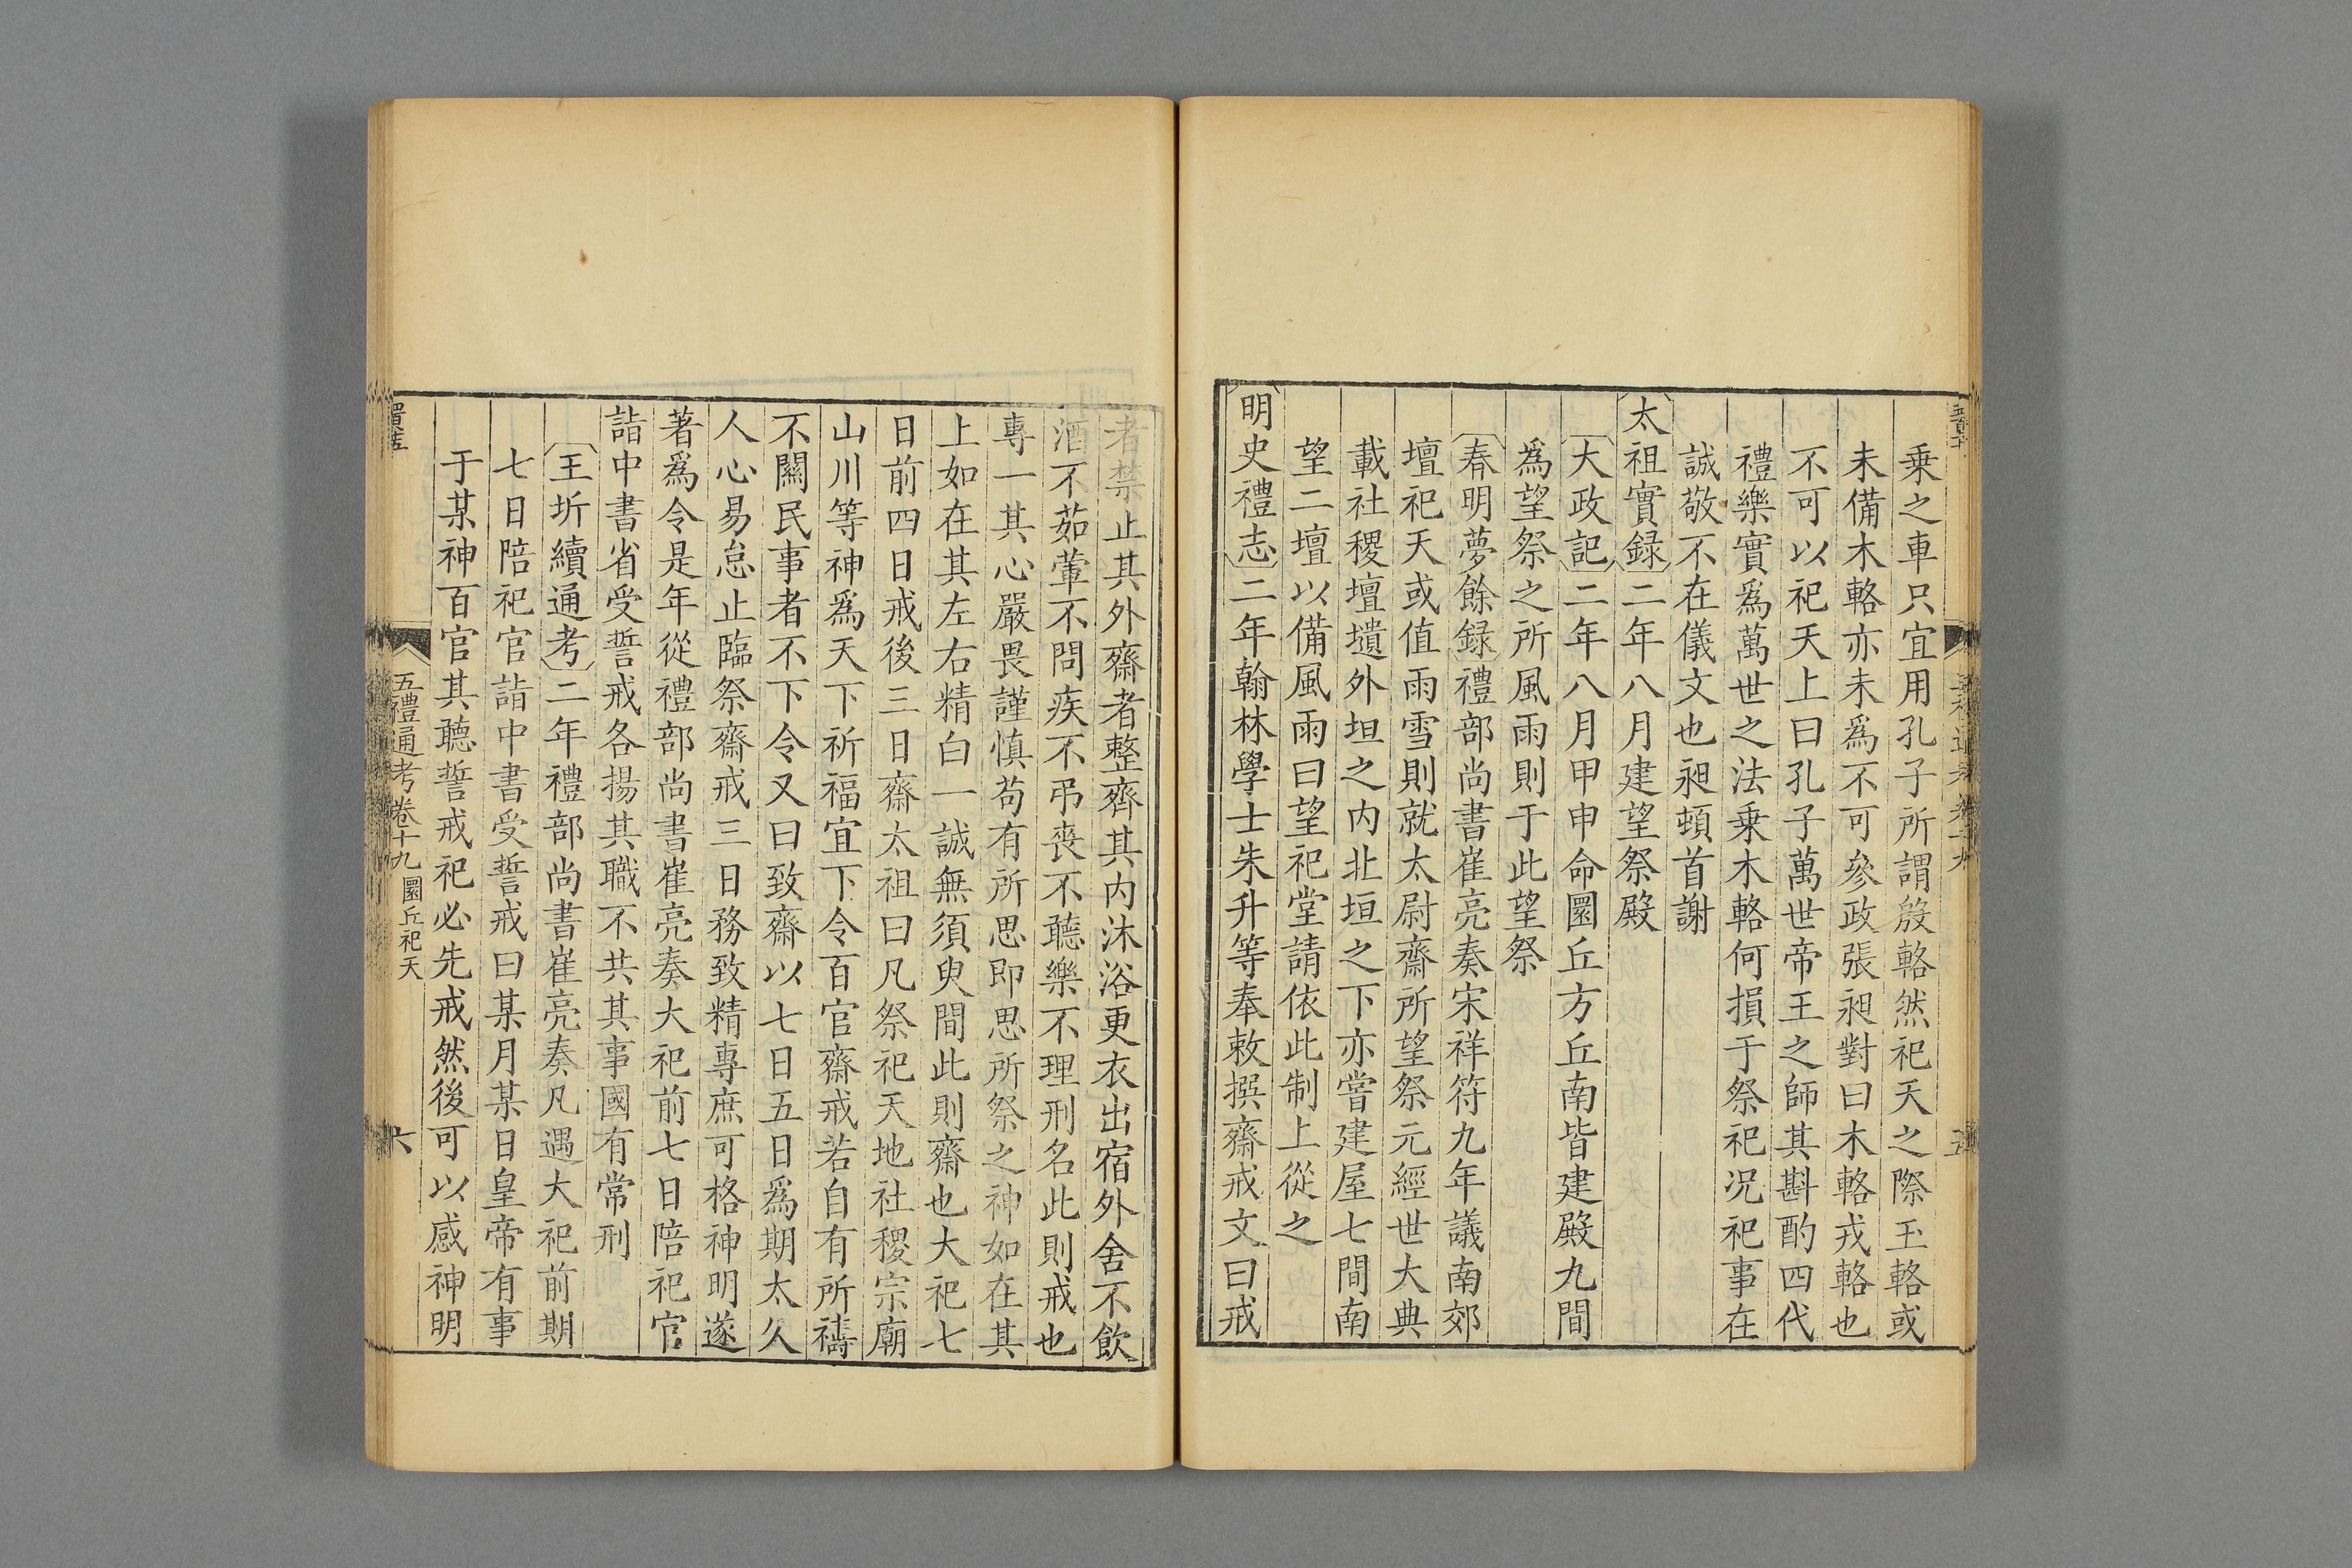 乗之車只宜用孔子所謂殷輅然祀天之際玉輅或
未備木輅亦未爲不可參政張昶對曰木輅戎輅也
不可以祀天上曰孔子萬世帝王之師其斟酌四代
禮樂實爲萬世之法乗木輅何損于祭祀況祀事在
誠敬不在儀文也昶頓首謝
太祖實録二年八月建望祭殿
大政記二年八月甲申命圜丘方丘南皆建殿九間
爲望祭之所風雨則于此望祭
春明夢餘録禮部尚書崔亮奏宋祥符九年議南郊
壇祀天或值雨雪則就太尉齋所望祭元經世大典
載社稷壇壝外垣之内北垣之下亦嘗建屋七間南
望二壇以備風雨曰望祀堂請依此制上從之
明史禮志二年翰林學士朱升等奉敕撰齋戒文曰戒
者禁止其外齋者整齊其内沐浴更衣出宿外舍不飲
酒不茹葷不問疾不弔喪不聽樂不理刑名此則戒也
專一其心嚴畏謹慎苟有所思即思所祭之神如在其
上如在其左右精白一誠無須臾間此則齋也大祀七
日前四日戒後三日齋太祖曰凡祭祀天地社稷宗廟
山川等神爲天下祈福宜下令百官齋戒若自有所禱
不關民事者不下令又曰致齋以七日五日爲期太久
人心易怠止臨祭齋戒三日務致精專庶可格神明遂
著爲令是年從禮部尚書崔亮奏大祀前七日陪祀官
詣中書省受誓戒各揚其職不共其事國有常刑
王圻續通考二年禮部尚書崔亮奏凡遇大祀前期
七日陪祀官詣中書受誓戒曰某月某日皇帝有事
于某神百官其聽誓戒祀必先戒然後可以感神明
五禮通考卷十九 圜丘祀天
六